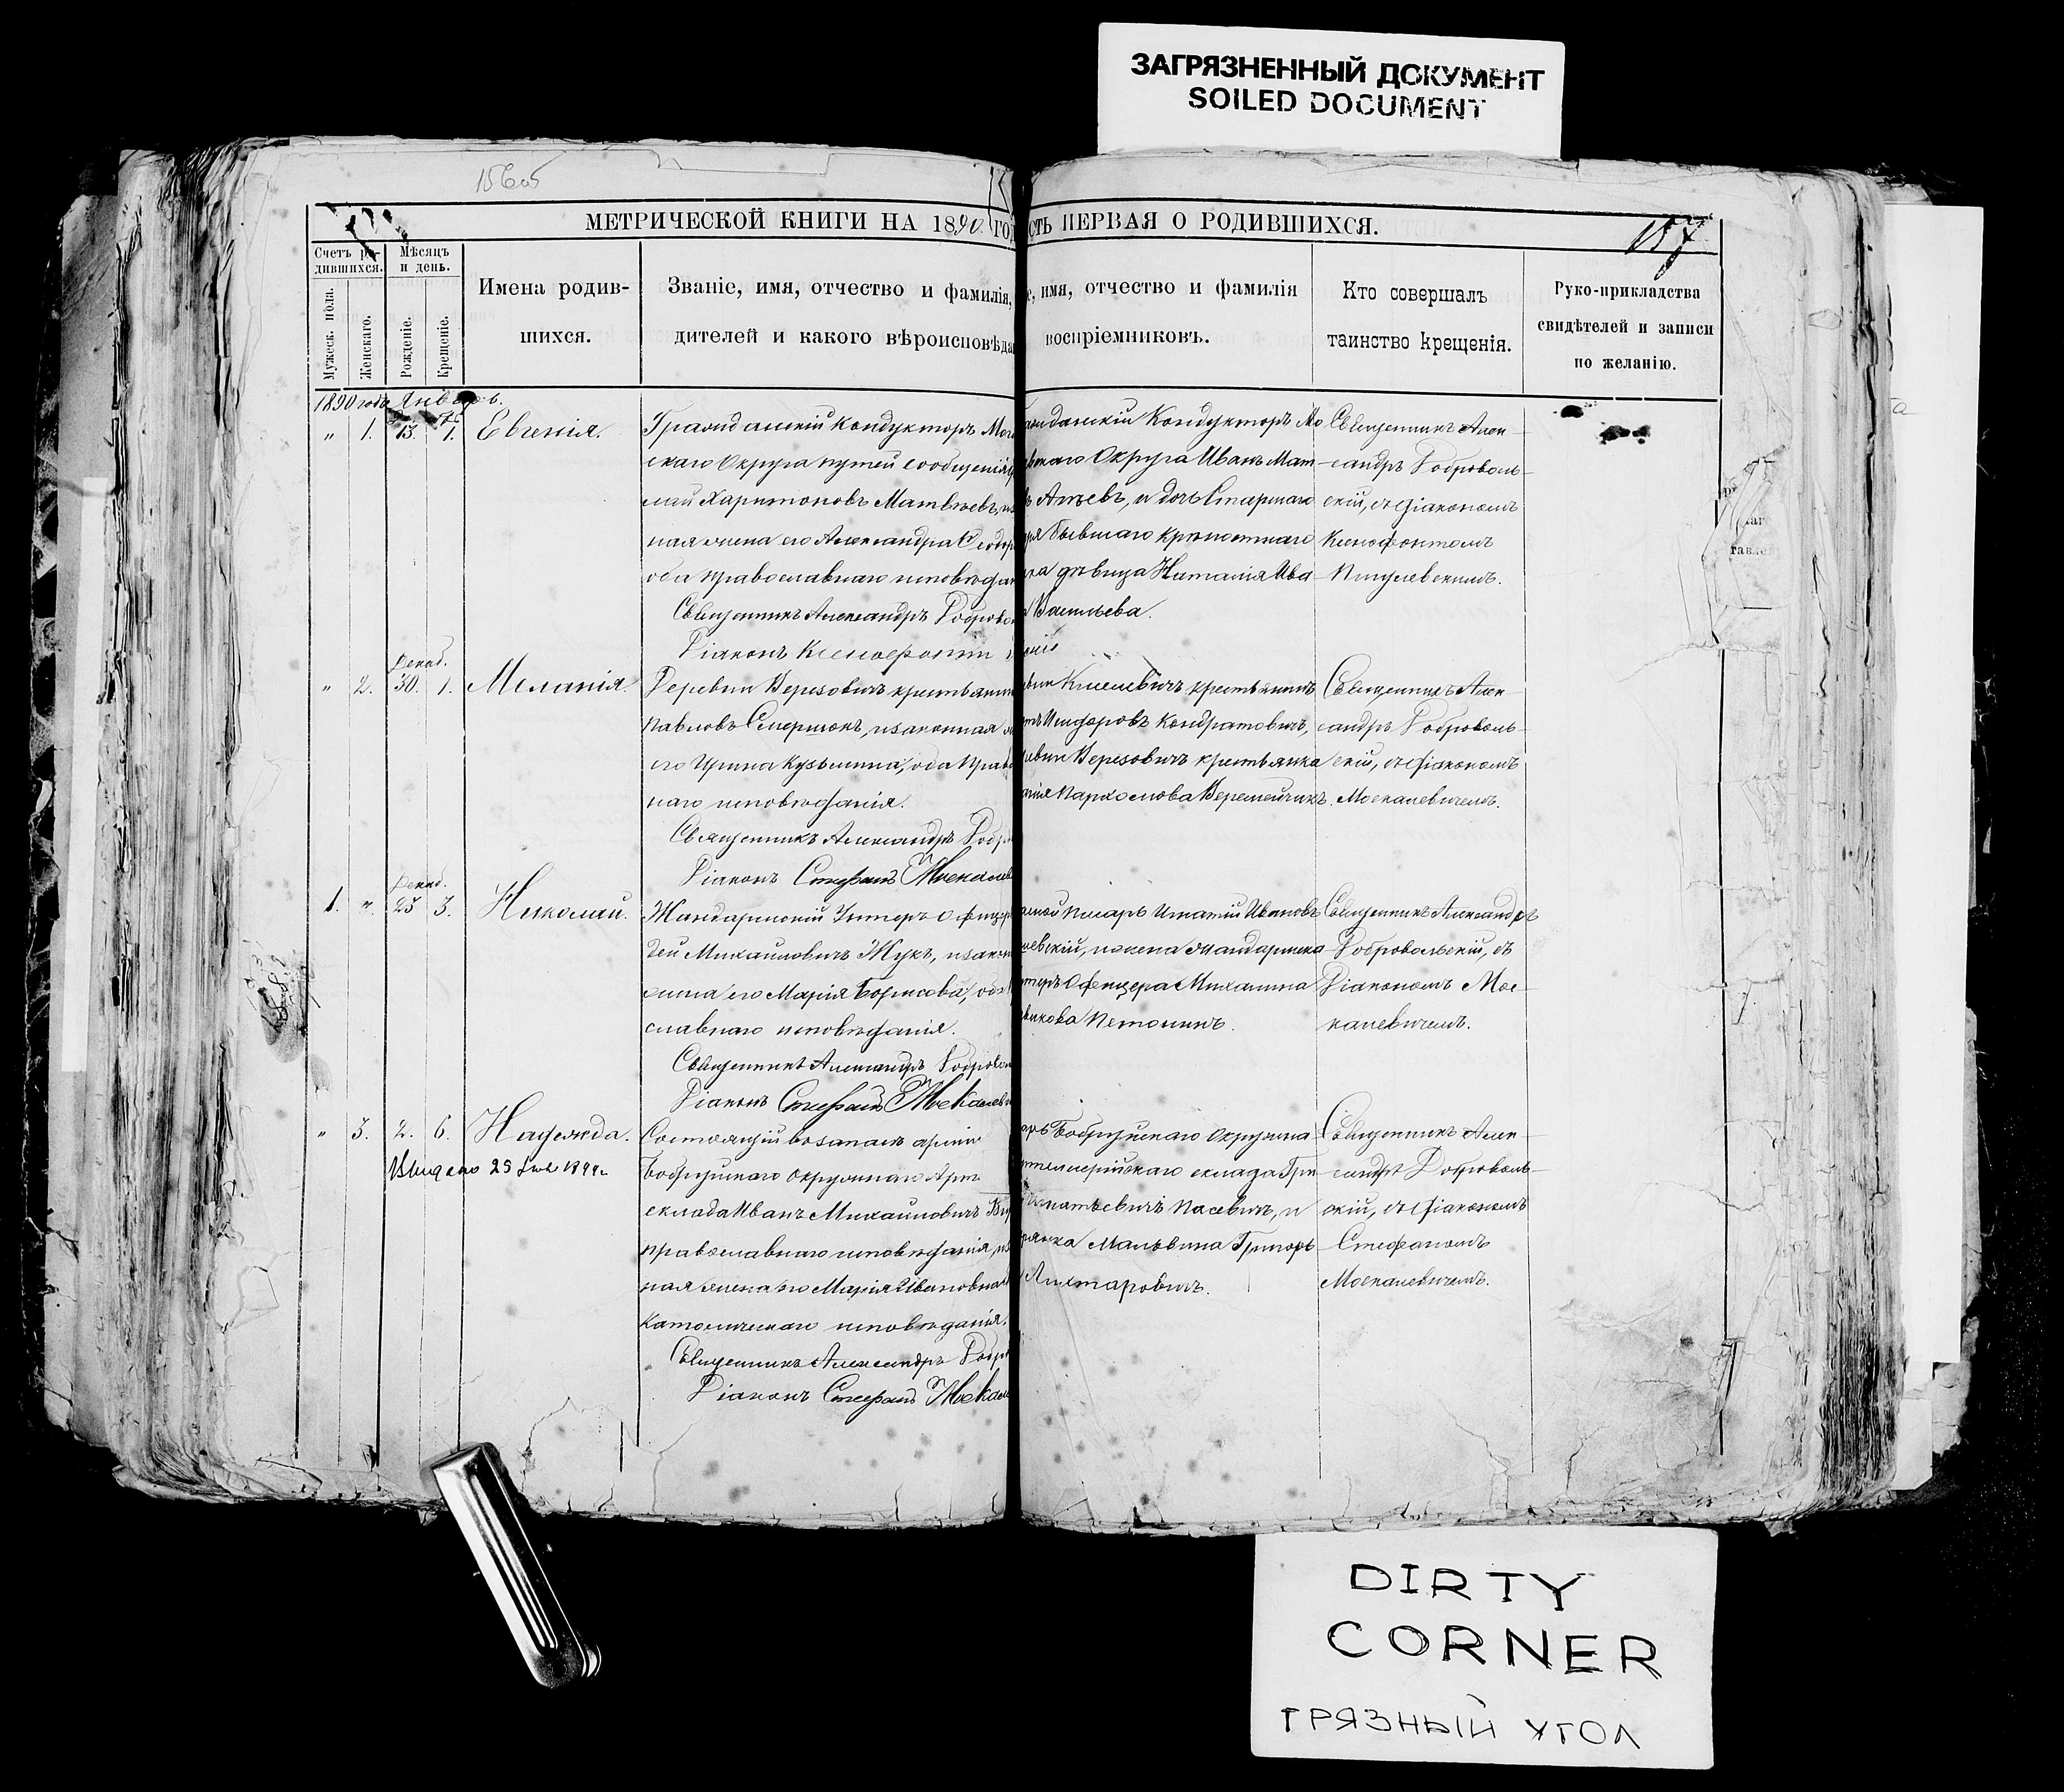 ЗАГРЯЗНЕННЫЙ ДОКУМЕНТ
SOILED DOCUMENT
156об
МЕТРИЧЕСКОЙ КНИГИ НА 1890 ГОД
СТЬ ПЕРВАЯ О РОДИВШИХСЯ.
157
Счетъ ро-
дившихся.
Мужеск. пола.
Женскаго.
Мѣсяцъ
и день.
Рожденіе.
Крещеніе.
Имена родив-
шихся.
Званіе, имя, отчество и фамилія,
дителей и какого вѣроисповѣда
, имя, отчество и фамилія
воспріемниковъ.
Кто совершалъ
таинство крещенія.
Руко-прикладства
свидѣтелей и записи
по желанію.
1890 годъ Январь.
" 1. 13. 1. Евгенія.
Гражданскій Кондукторъ Мог
скаго Округа путей сообщенія
лай Харитоновъ Матвѣевъ, и
ная жена его Александра Сеодор
оба православнаго исповѣдан
Священникъ Александръ Доброво
Діаконъ Ксенофонтъ
данскій Кондукторъ Мо
скаго Округа Иванъ Мат
Агѣевъ, и дочь Старшаго
бывшаго крѣпостнаго
ра дѣвица Наталія Ива
Васильева.
Священникъ Алек-
сандръ Доброволь-
скій, съ діакономъ
Ксенофонтомъ
Пигулевскимъ.
Декаб.
" 2. 30. 1. Меланія.
Деревни Березовичъ крестьянин
Павловъ Смершокъ, и законная
его Ирина Кузьмина, оба Право
наго исповѣданія.
Священникъ Александръ Добр
Діаконъ Стефанъ Москалев
вни Киселевичъ крестьянинъ
Исидоровъ Кондратовичъ,
евни Березовичъ крестьянка
Пархомова Веремейчикъ.
Священникъ Алек-
сандръ Доброволь-
скій, съ діакономъ
Москалевичемъ.
Декаб.
1. " 25 3. Николай.
Жандармскій Унтеръ-офицер
дей Михайловичъ Жукъ, и закон
жена его Марія Борисова, оба
славнаго исповѣданія.
Священникъ Александръ Добровол
Діаконъ Стефанъ Москалеви
писарь Игнатій Ивановъ
левскій, и жена Жандармска
теръ офицера Михалина
Петонинъ.
Священникъ Александръ
Добровольскій, съ
Діакономъ Мос-
калевичемъ.
" 3. 2. 6. Надежда.
Выдано 25 1899г
Состоящій въ запасѣ арміи
Бобруйскаго окружнаго Арт
склада Иванъ Михайловичъ
православнаго исповѣданія, и
ная жена его Марія Ивановна
Католическаго исповѣданія.
Священникъ Александръ Добр
Діаконъ Стефанъ Москале
арь Бобруйскаго окружна
тиллерійскаго склада Гри
Игнатьевичъ Пасевичъ, и
рянка Мальвина Григорь
Лихтаровичъ.
Священникъ Алек-
сандръ Доброволь-
скій, съ діакономъ
Стефаномъ
Москалевичемъ.
DIRTY
CORNER
ГРЯЗНЫЙ УГОЛ